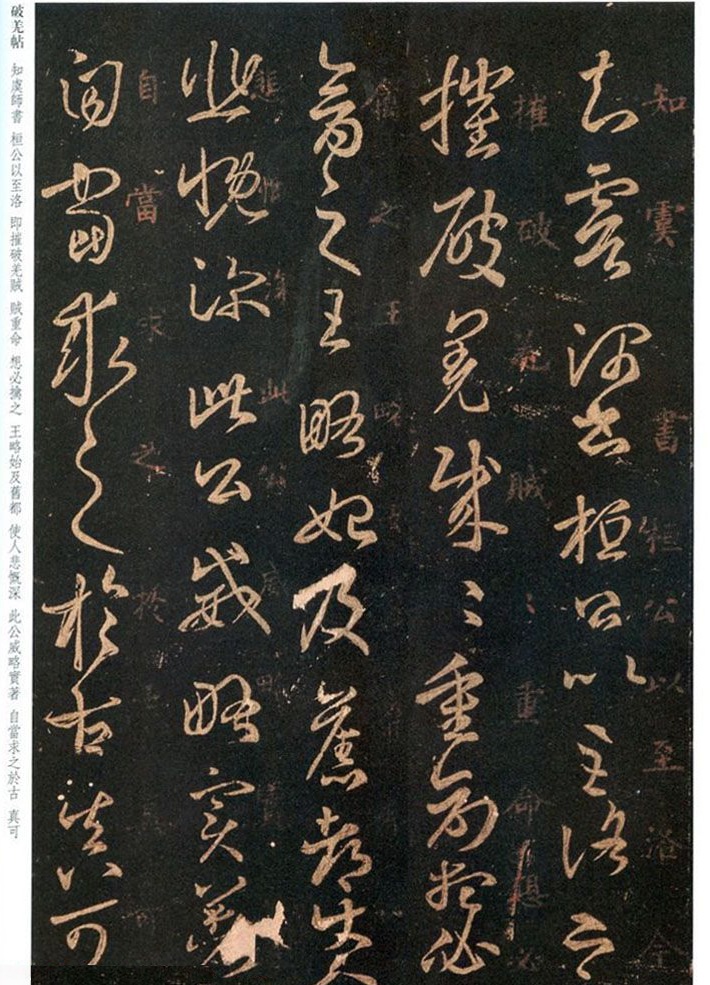 知虞書桓公以至洛
知虞師書桓公以至洛即
摧破羌賊〻重命想必
摧破羌賊〻重命想必
之王略
擒之王略始及舊都使人
悲慨深此威略實
悲慨深此公威略實著
自當求之於古真可
自當求之於古真可
破羌帖 知虞師書 桓公以至洛 即摧破羌賊 賊重命 想必擒之 王略始及舊都 使人悲慨深 此公威略實著 自當求之於古 真可